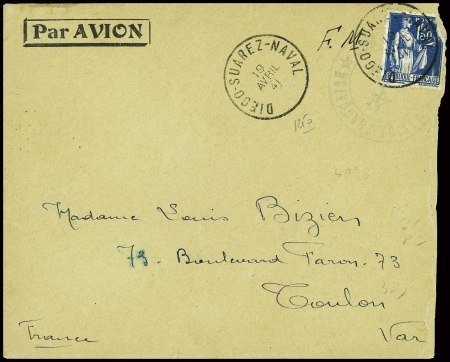 Par AVION
F. M
DIEGO-SUAREZ-NAVAL
19
AVRIL
41
POSTES
1F50
Madame Louis Biziers
73 - Boulevard Faron - 73
Toulon
France
Var